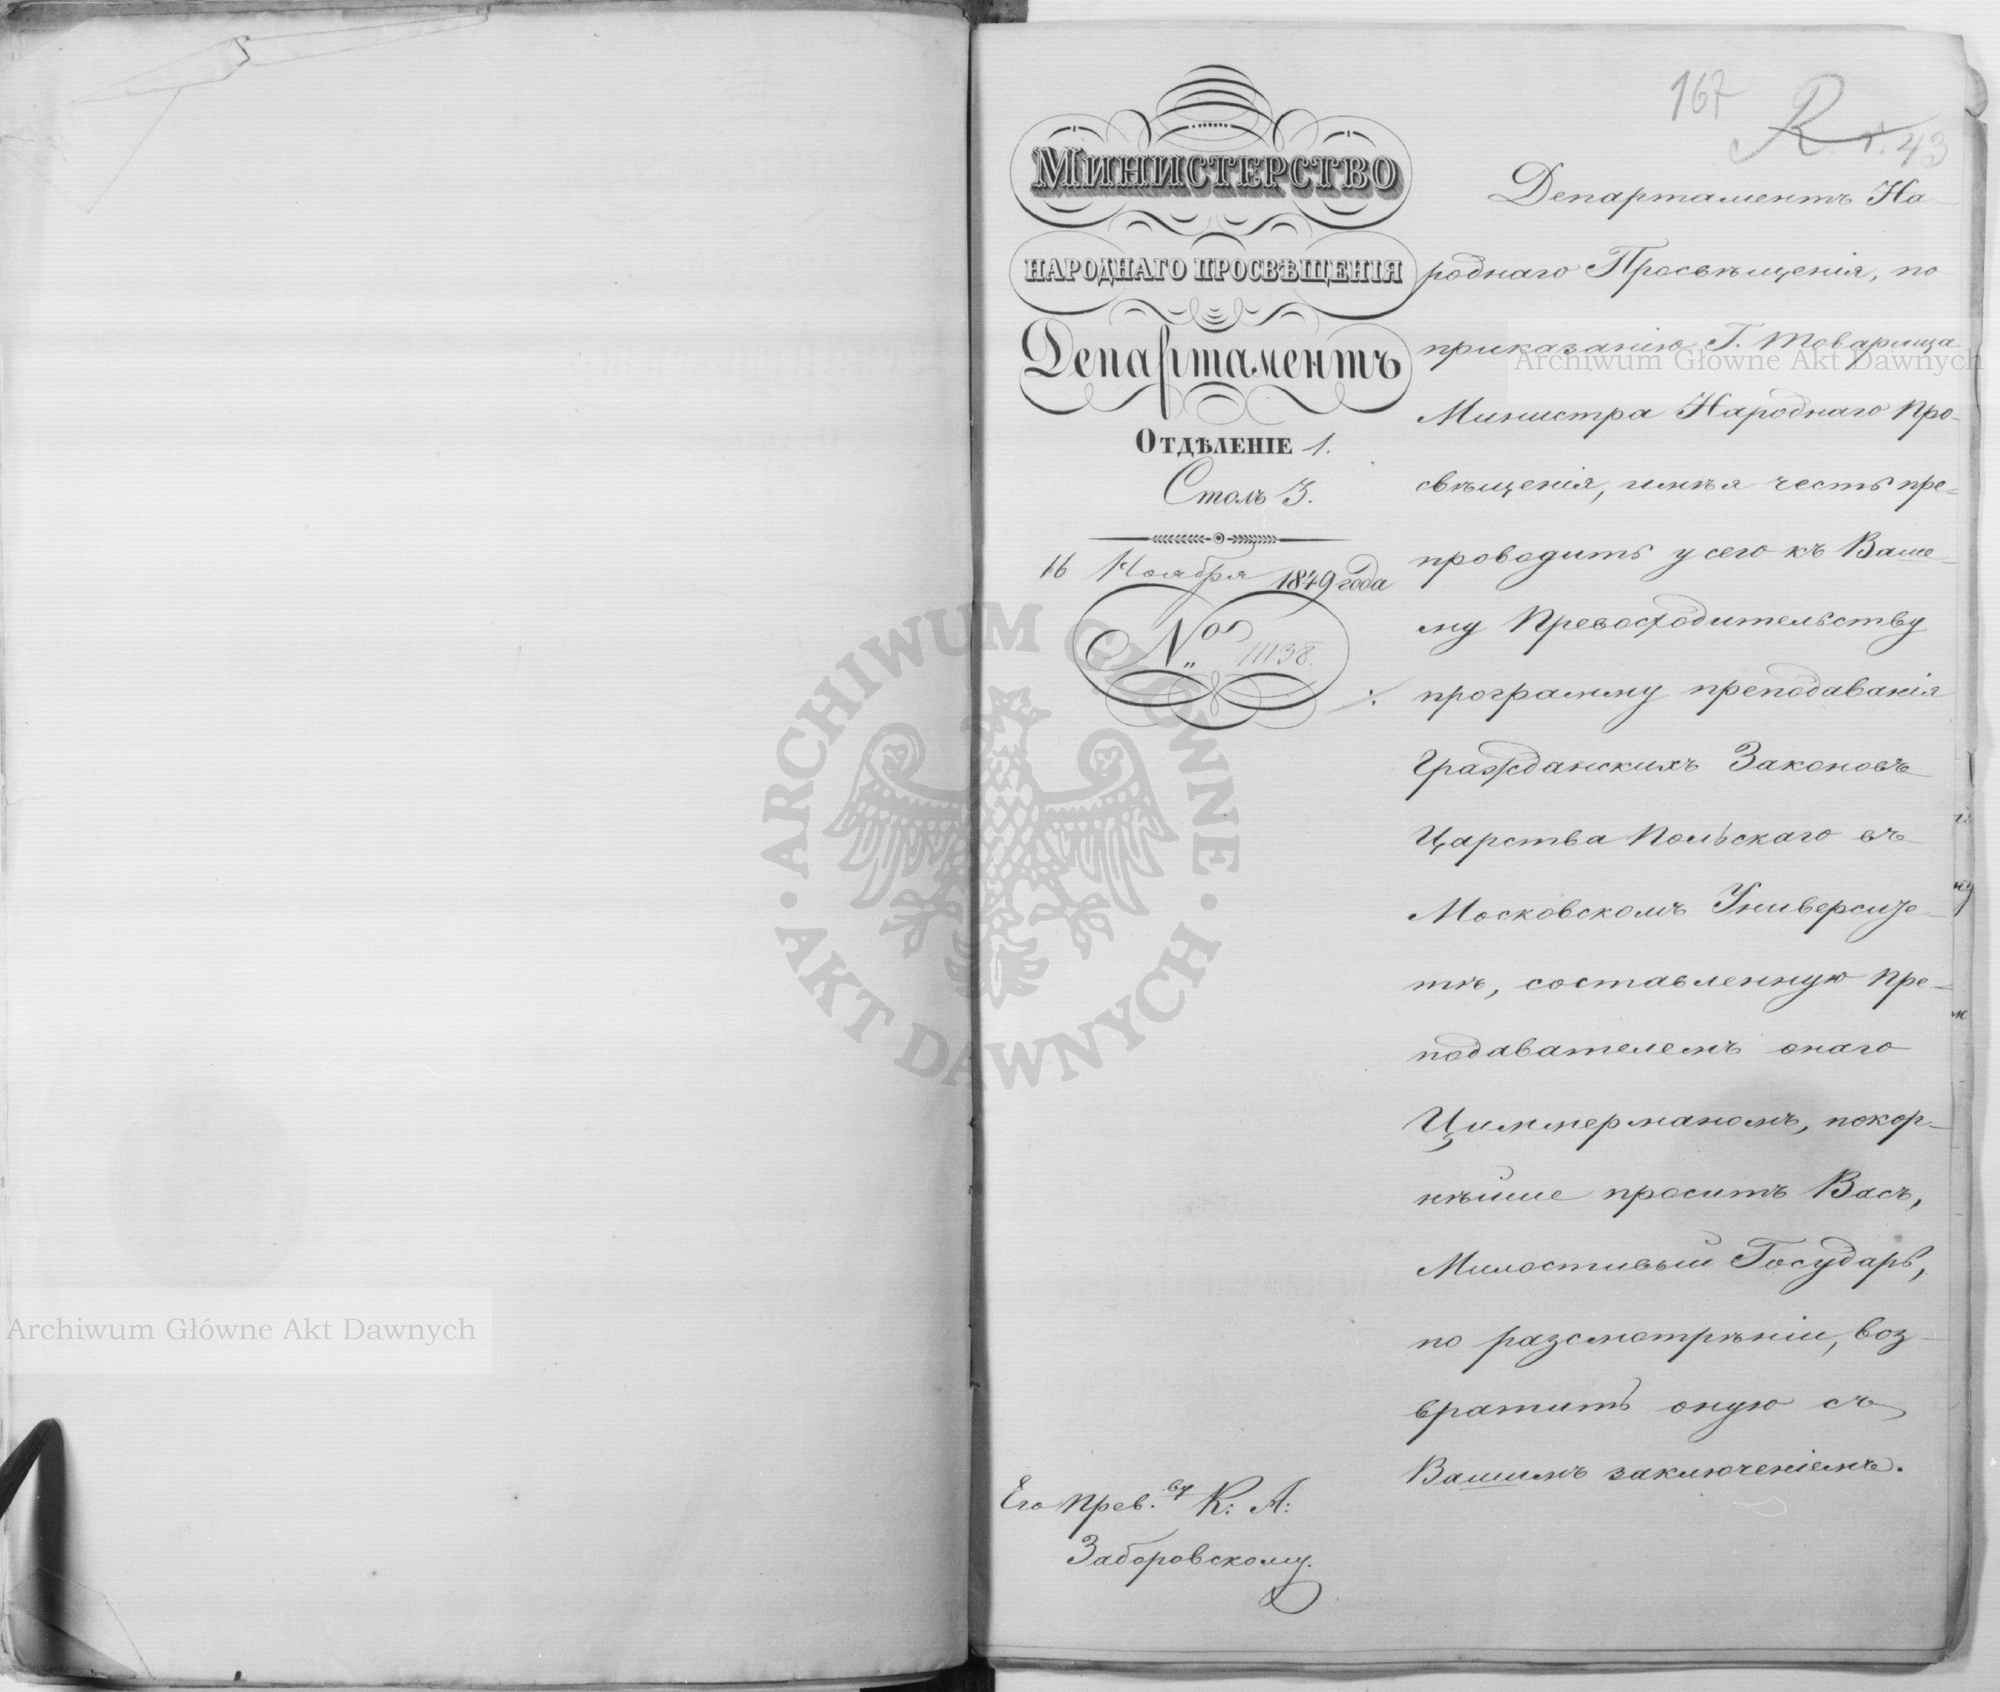 167
R. r. 43
МИНИСТЕРСТВО
НАРОДНАГО ПРОСВѢЩЕНІЯ
Департаментъ
ОТДѢЛЕНІЕ 1.
Столъ 3.
16 Ноября 1849 года
№ 11138.
Департаментъ На-
роднаго Просвѣщенія, по
приказанію Г. Товарища
Министра Народнаго Про-
свѣщенія, имѣя честь пре-
проводить у сего къ Ваше-
му Превосходительству
программу преподаванія
Гражданскихъ Законовъ
Царства Польскаго въ
Московскомъ Университе-
тѣ, составленную пре-
подавателемъ онаго
Циммерманомъ, покор-
нѣйше проситъ Васъ,
Милостивый Государь,
по разсмотрѣніи, воз-
вратить оную съ
Вашимъ заключеніемъ.
Его Прев.ву К: А:
Заборовскому.
Archiwum Główne Akt Dawnych
Archiwum Główne Akt Dawnych
ARCHIWUM GŁÓWNE · AKT DAWNYCH ·